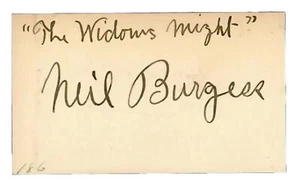 "The Widows Might"
Neil Burgess
186